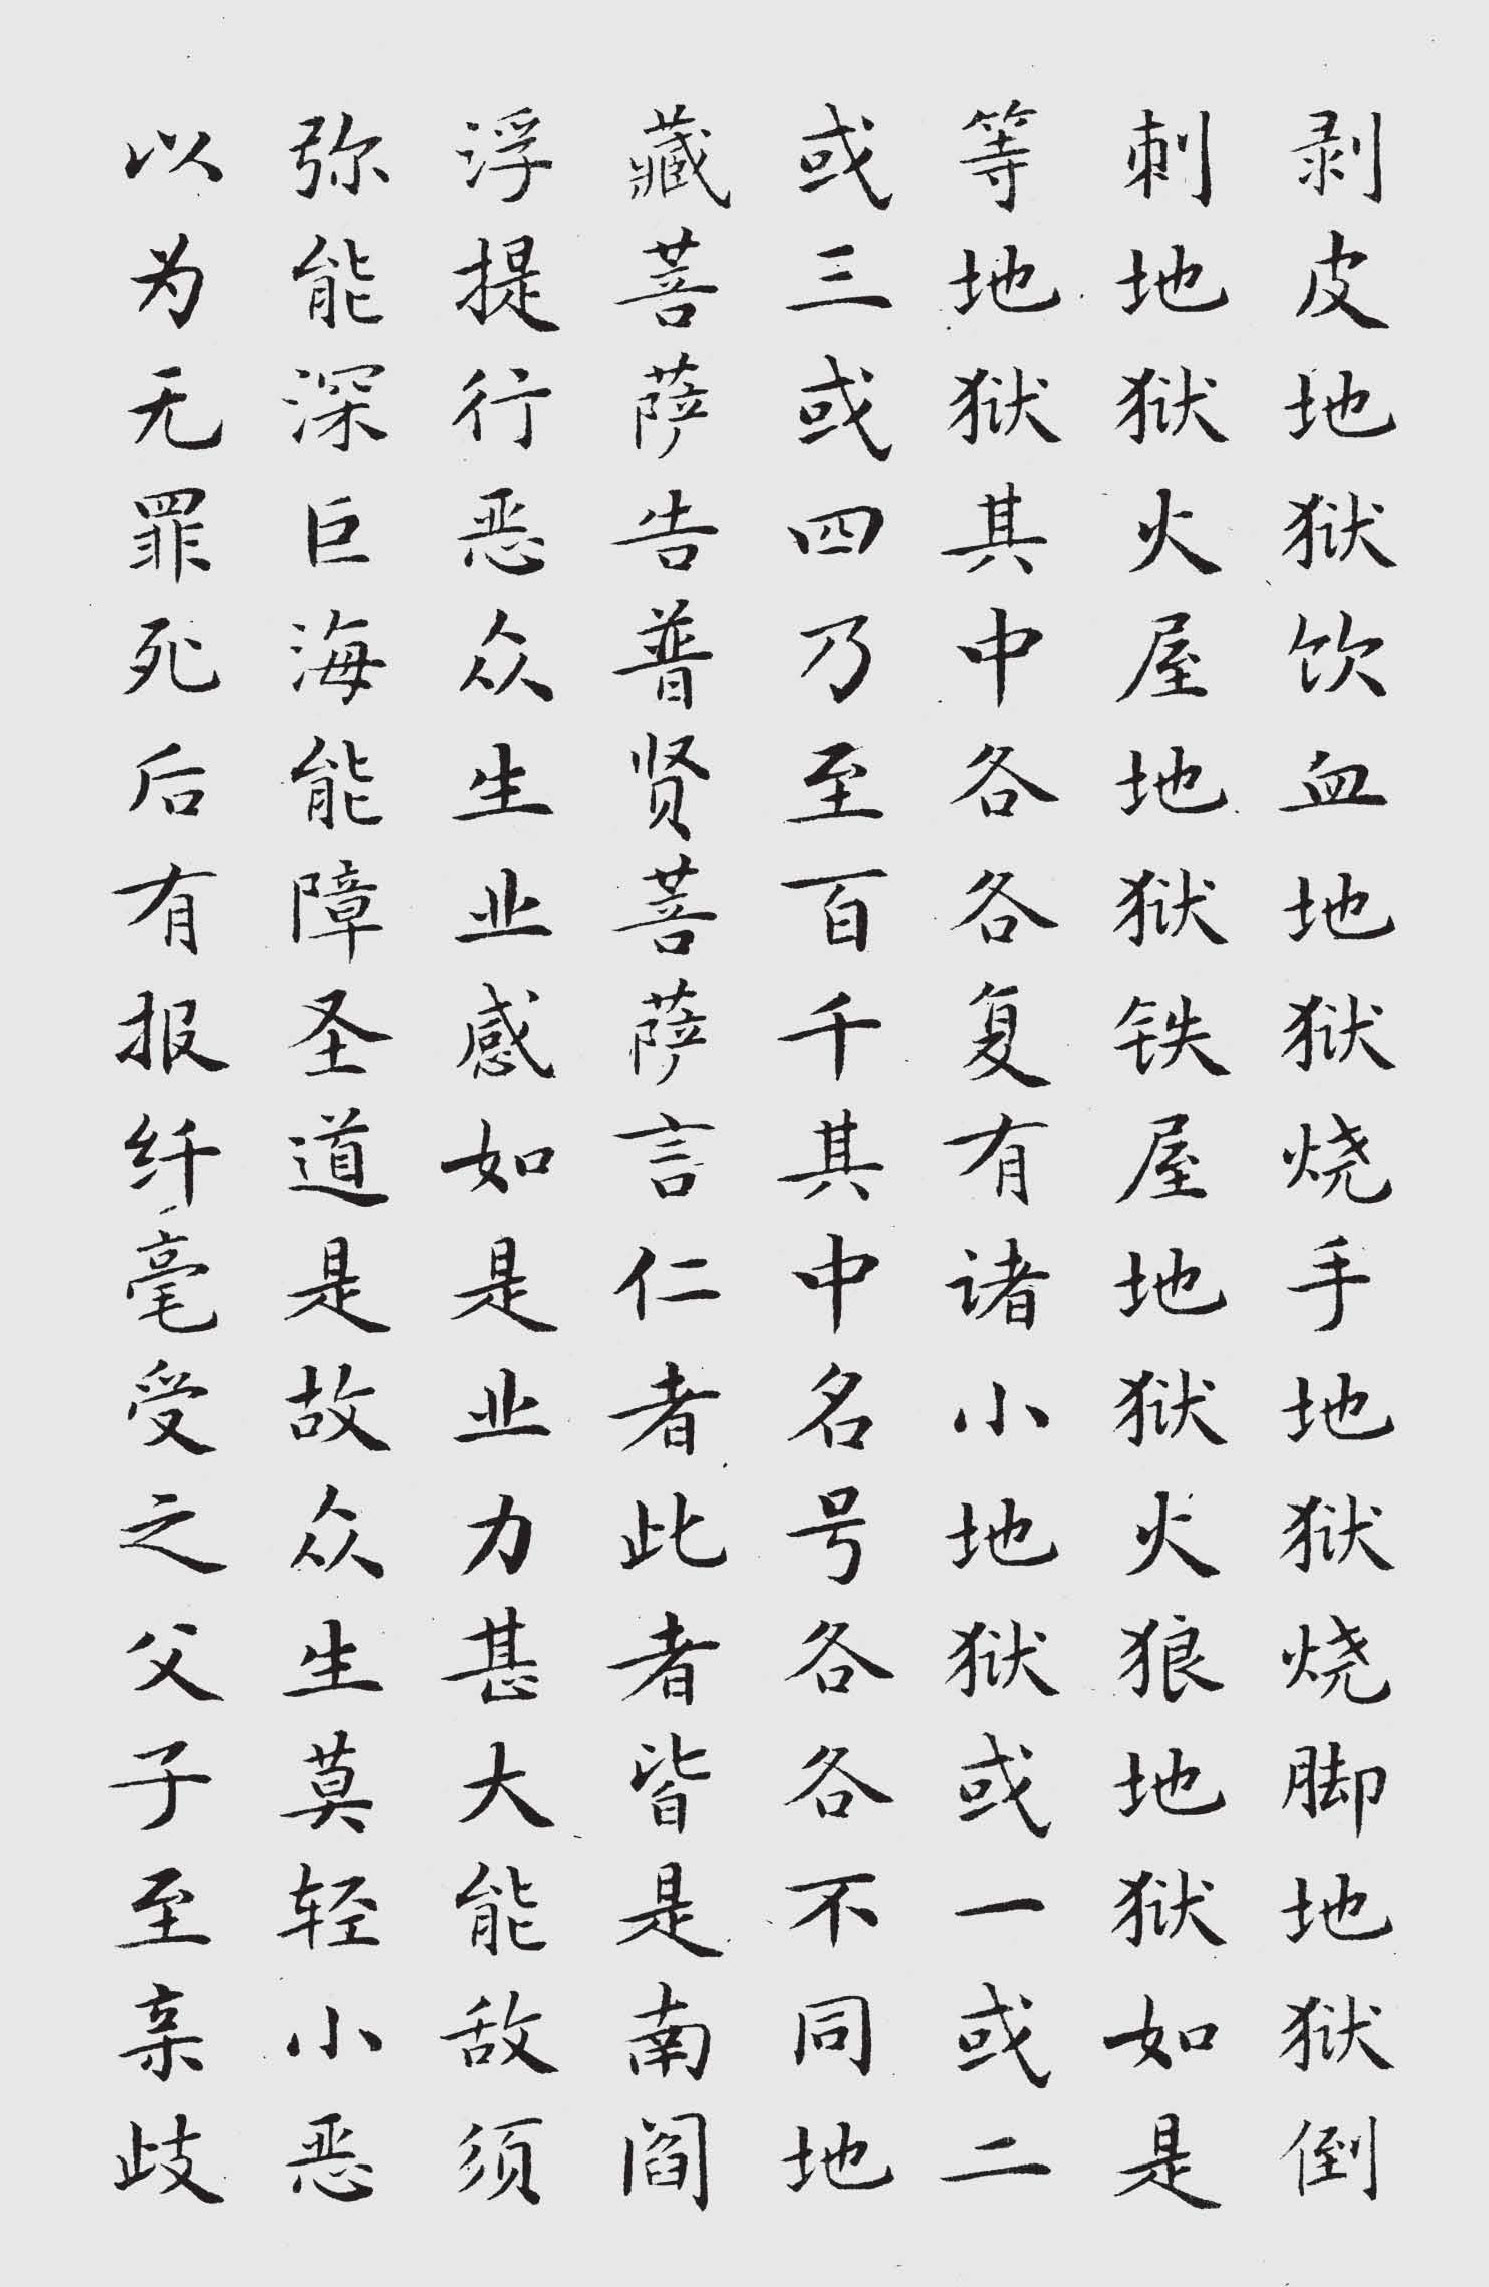 剥皮地狱饮血地狱烧手地狱烧脚地狱倒
刺地狱火屋地狱铁屋地狱火狼地狱如是
等地狱其中各各复有诸小地狱或一或二
或三或四乃至百千其中名号各各不同地
藏菩萨告普贤菩萨言仁者此者皆是南阎
浮提行恶众生业感如是业力甚大能敌须
弥能深巨海能障圣道是故众生莫轻小恶
以为无罪死后有报纤毫受之父子至亲歧